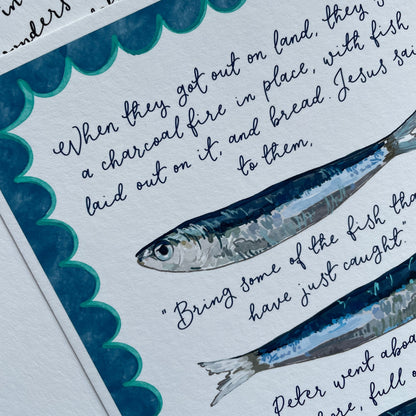 in
unders
When they got out on land, they
a charcoal fire in place, with fish
laid out on it, and bread. Jesus sai
to them,
"Bring some of the fish tha
have just caught."
Peter went aboa
here, full o